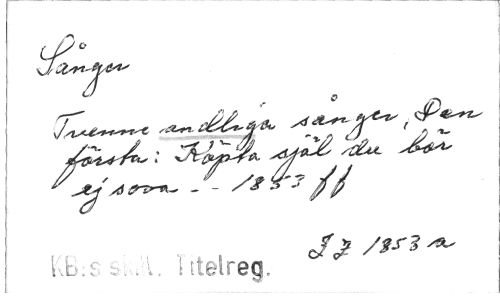 Sånger
Tvenne andliga sånger, Den
första: Köpta själ du bör
ej sova - - 1853 ff
1853 a
KB:s skill. Titelreg.